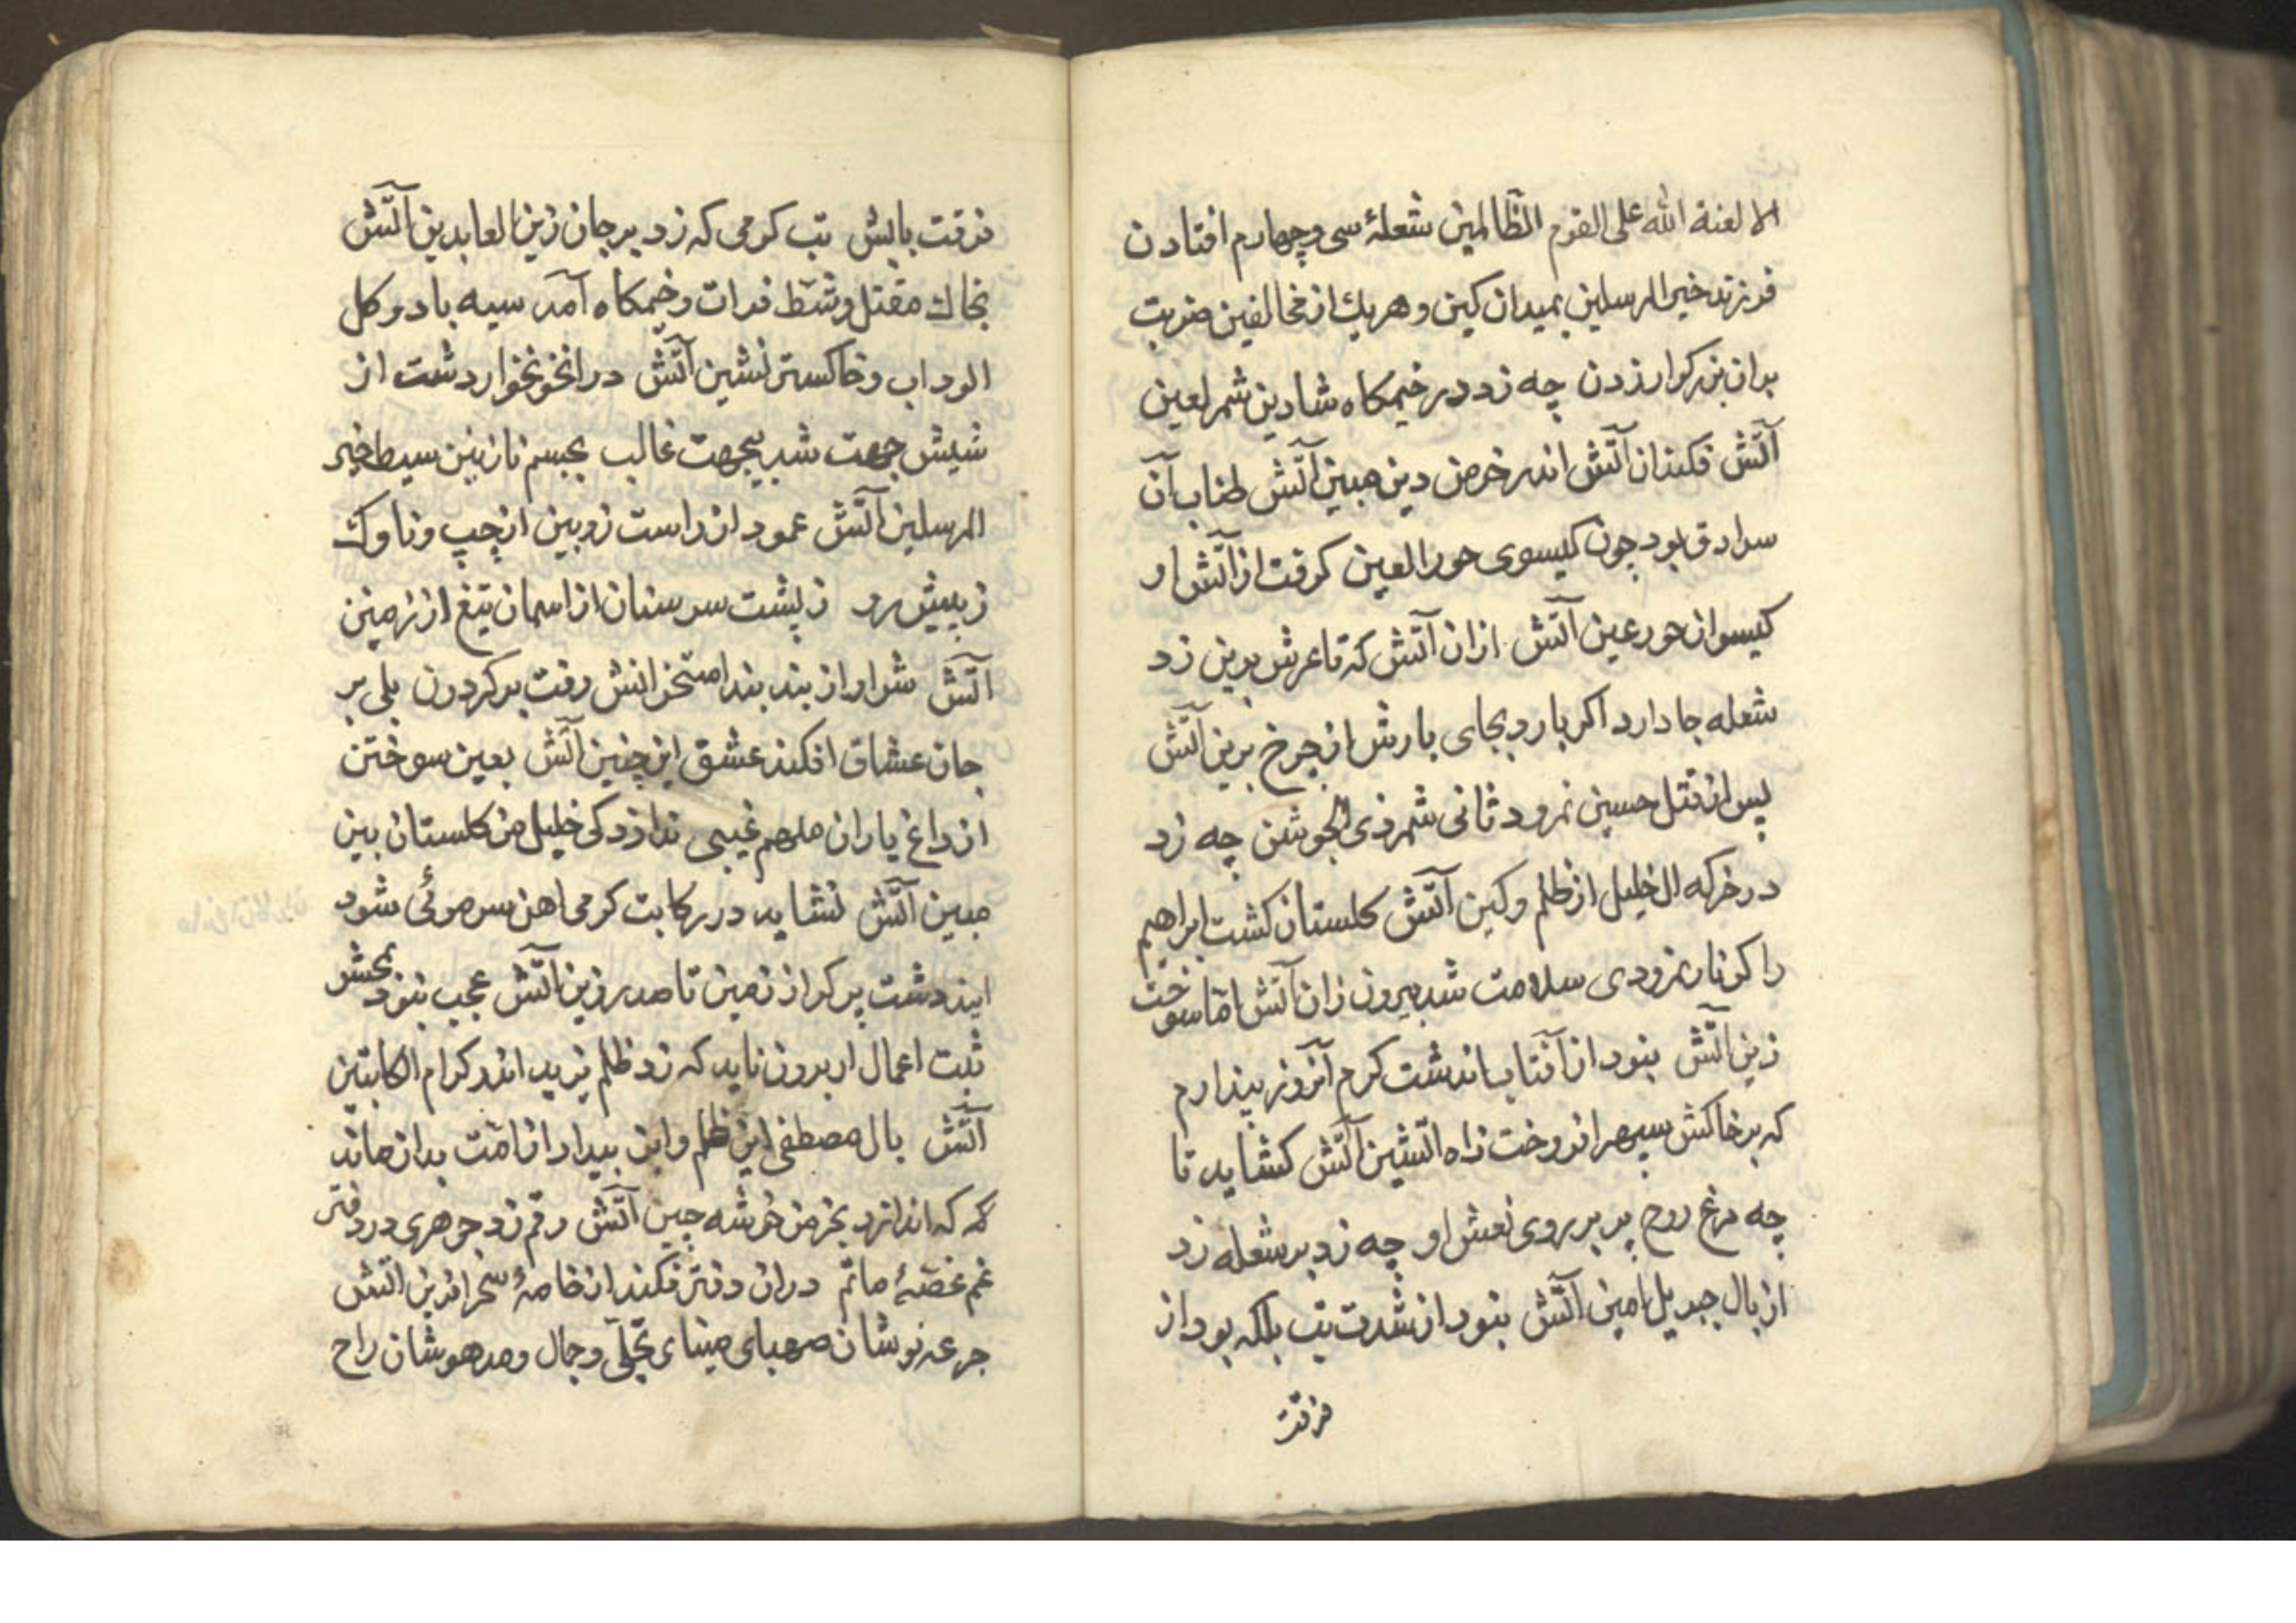 الا لعنة الله علی القوم الظالمین شعلهٔ سی و چهارم افتادن
فرزند خیر المرسلین بمیدان کین و هریك از مخالفین ضربت
بران بزرکوار زدن چه زد در خیمکاه شادین شمر لعین
آتش فکند ان آتش اندر خرمن دین مبین آتش طناب آن
سرادق بود چون کیسوی حور العین کرفت از آتش او
کیسوان حور عین آتش ازان آتش که تا عرش برین زد
شعله جا دارد اکر بارد بجای بارش از چرخ برین آتش
پس از قتل حسین نمرود ثانی شمر ذی الجوشن چه زد
در خرکه ال خلیل از ظلم و کین آتش کلستان کشت ابراهیم
را کر نار نمرودی سلامت شد بیرون زان آتش اما سوخت
زین آتش بنود از آفتاب اندشت کرم آنروز پندارم
که بر خاکش سپهر افروخت زاه اتشین آتش کشاید تا
چه مرغ روح پر بر روی نعش او چه زد بر شعله زد
از بال جبریل امین آتش بنود از شدت تب بلکه بود از
فرقت
فرقت بابش تب کرمی که زد بر جان زین العابدین آتش
بخاك مقتل و شط فرات و خیمکاه آمد سیه باد و کل
الود اب و خاکستر نشین آتش در انخونخوار دشت از
شیش جهت شد بیجهت غالب بجسم نازنین سبط خیر
المرسلین آتش عمود از راست زوبین از چپ و ناوك
ز پیش رو ز پشت سر سنان از اسمان تیغ از زمین
آتش شرار از بند بند استخوانش رفت بر کردون بلی بر
جان عشاق افکند عشق این چنین آتش بعین سوختن
از داغ یاران ملهم غیبی ندا زد کی خلیل من کلستان بین
مبین آتش نشاید در رکابت کرمی اهن سر موئی شود
ایندشت پر کر از زمین تا صدر زین آتش عجب بنود بحشر
ثبت اعمال ار برون ناید که زد ظلم یزید اندر کرام الکاتبین
آتش بال مصطفی این ظلم و این بیداد از امت بدان ماند
که که اندازد بخرمن خوشه چین آتش رقم زد جوهری در دفتر
غم غصهٔ ماتم دران دفتر فکند از خامهٔ سحر افرین آتش
جرعه نوشان صهبای مینای تجلّی و جمال و مدهوشان راح